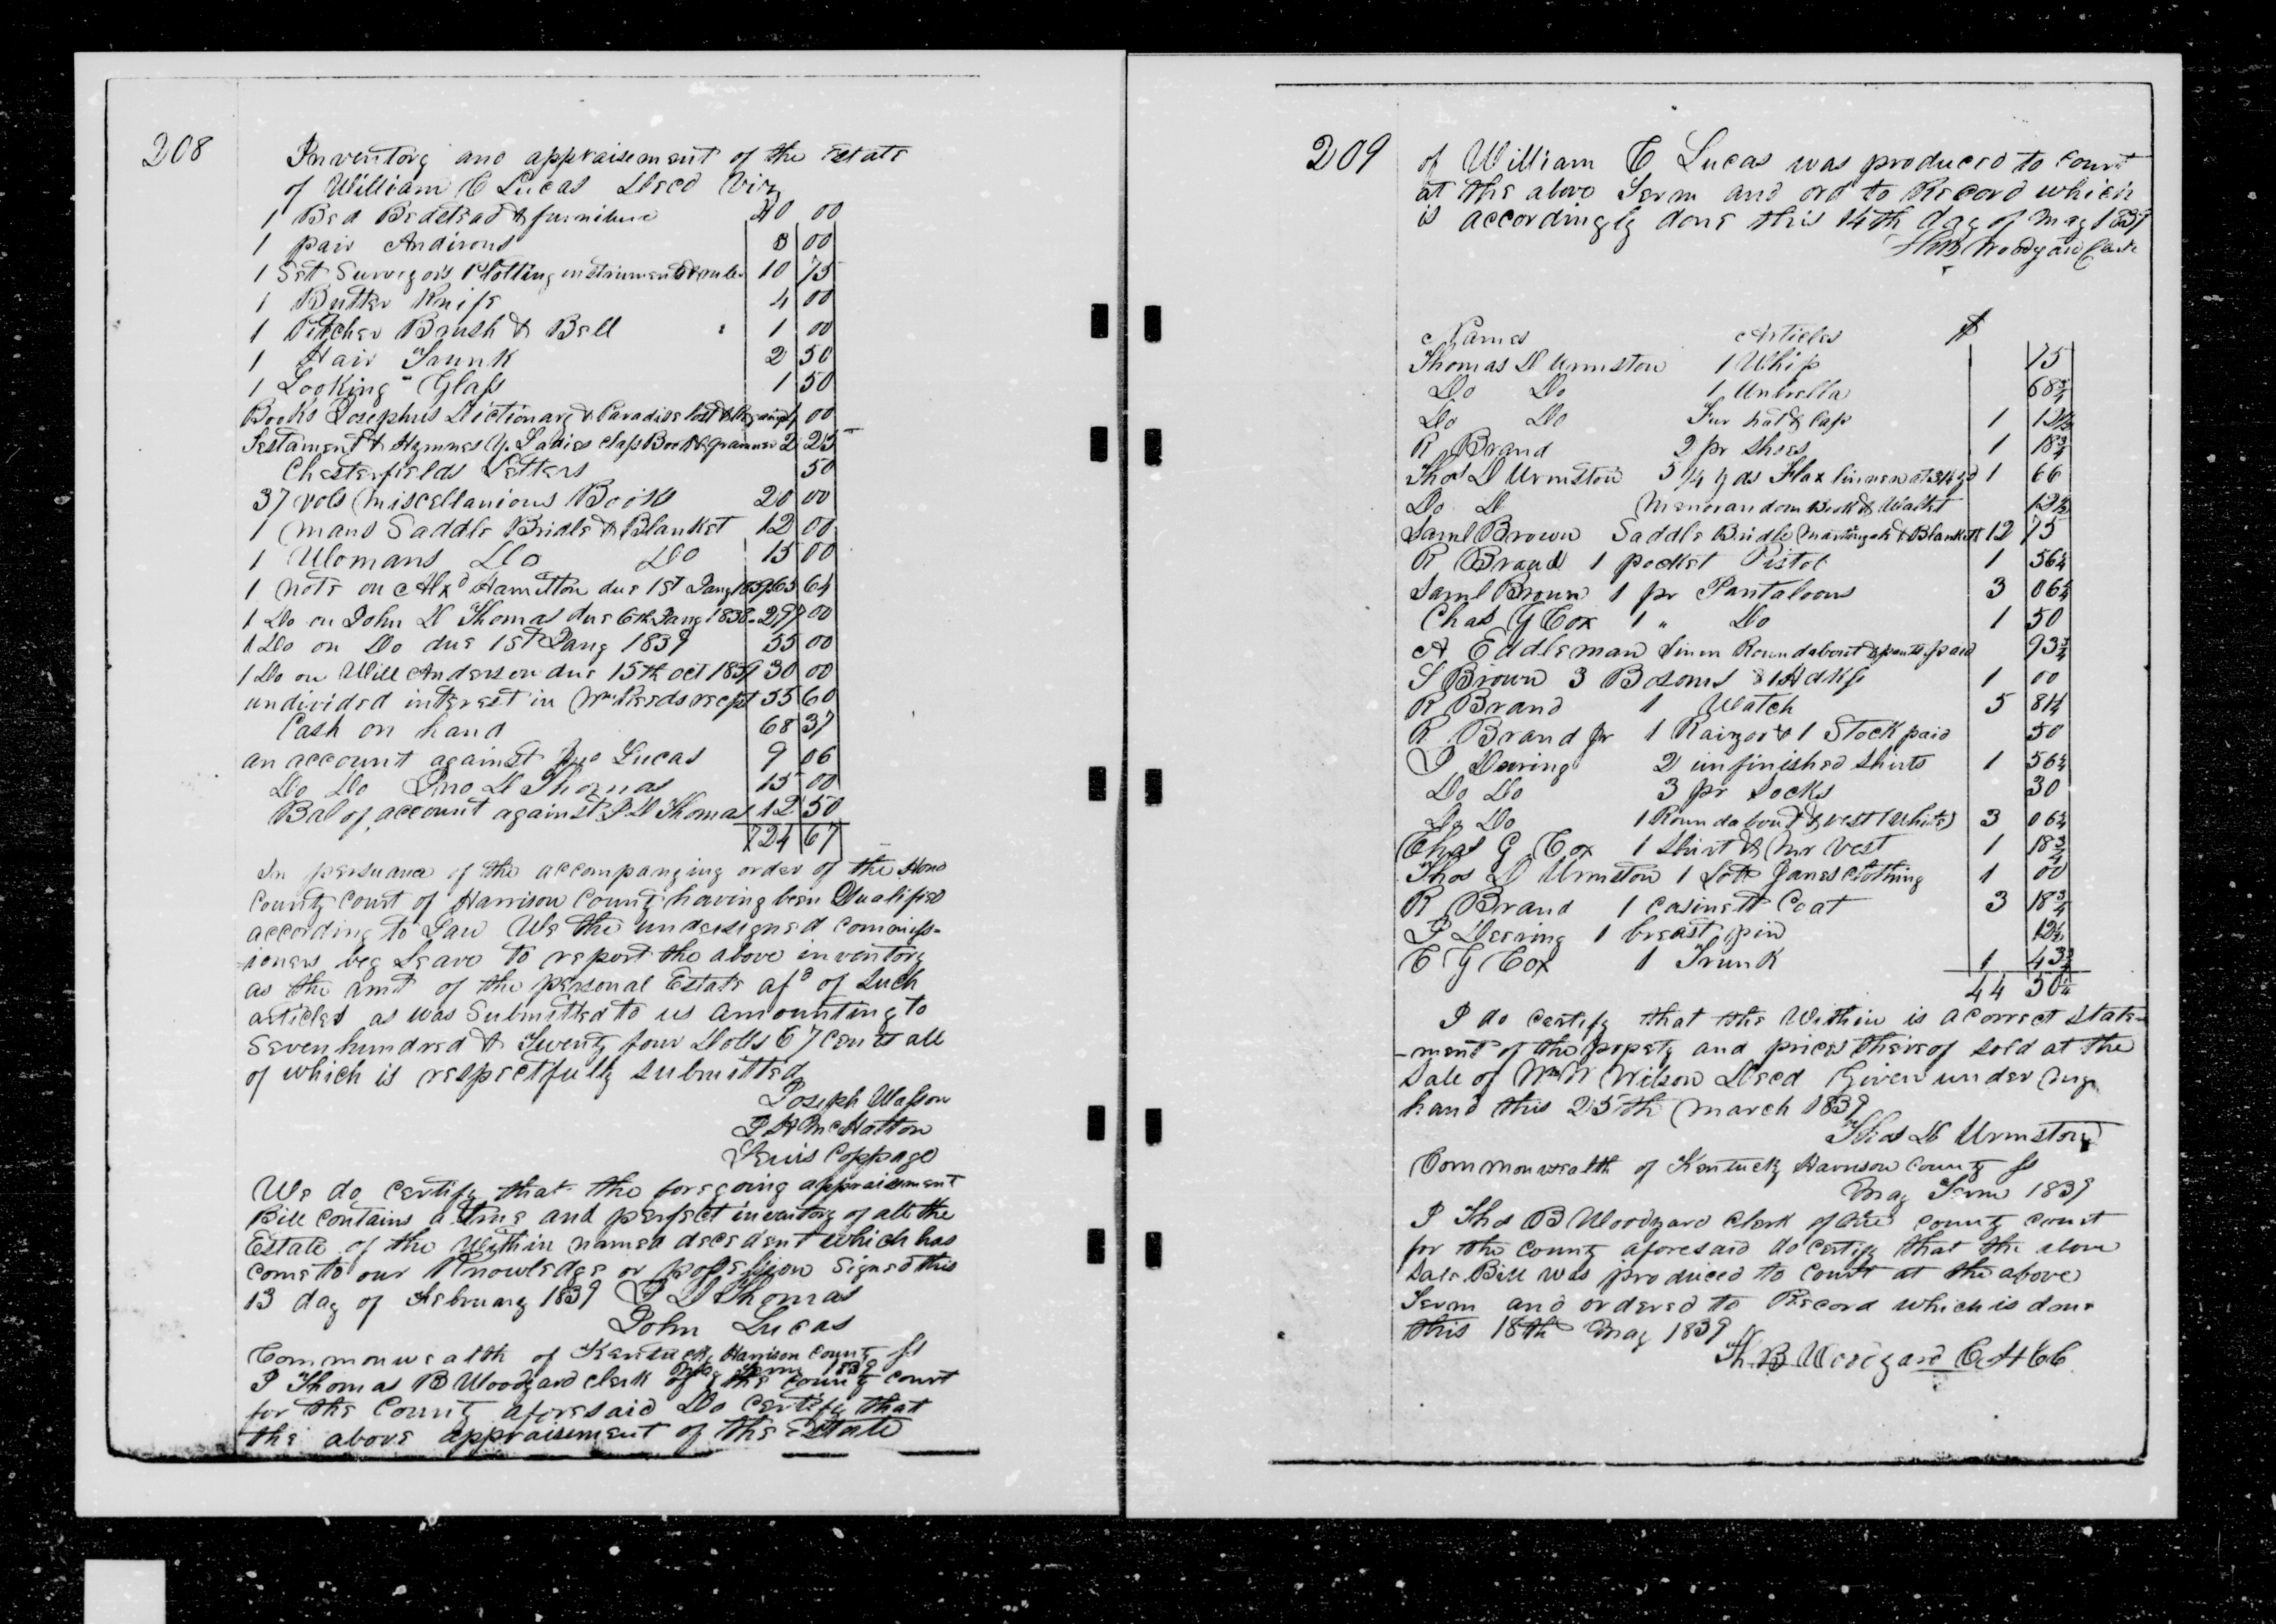 208
Inventory and appraisement of the Estate
of William C Lucas Decd Viz
1 Bed Bedstead & furniture 40 00
1 pair Andirons 3 00
1 Set Surveyors Plotting instruments & rule 10 75
1 Butter Knife 4 00
1 Pitcher Brush & Bell 1 00
1 Hair Trunk 2 50
1 Looking Glass 1 50
Books Josephus Dictionary & Paradise lost & 00
Testament & Hymnes Y. Ladies Class Book & Grammer 2 25
Chesterfields Letters 50
37 vols Miscellanious Books 20 00
1 Mans Saddle Bridle & Blanket 12 00
1 Womans Do Do 15 00
1 Note on Alxd Hamilton due 1st Jany 1839 65 64
1 Do on John D Thomas due 6th Jany 1838 297 00
1 Do on Do due 1st Jany 1839 55 00
1 Do on Will Anderson due 15th Oct 1839 30 00
undivided interest in Wm Reeds recpt 55 60
Cash on hand 68 37
an account against Jno Lucas 9 06
Do Do Jno D Thomas 15 00
Bal of account against J D Thomas 12 50
724 67
In persuance of the accompanying order of the Hono
County Court of Harrison County having been Qualified
according to Law We the undersigned commiss-
-ioners beg Leave to report the above inventory
as the amt of the personal Estate afd of such
articles as was Submitted to us amounting to
Seven hundred & Twenty four Dolls 67 cents all
of which is respectfully submitted
Joseph Wasson
J H McHatton
Lewis Coppage
We do certify that the foregoing appraisment
Bill contains a true and perfect inventory of all the
Estate of the Within named decedent which has
come to our Knowledge or possession Signed this
13 day of February 1839 J D Thomas
John Lucas
Commonwealth of Kentucky Harrison County ss
May Term 1839
I Thomas B Woodyard clerk of the county court
for the County aforesaid Do Certify that
the above appraisement of the Estate
209
of William C Lucas was produced to court
at the above Term and ord to Record which
is accordingly done this 14th day of May 1839
ThB Woodyard Clerk
Names Articles $
Thomas D Urmston 1 Whip 75
Do Do 1 Umbrella 68 3/4
Do Do Fur hat & Cap 1 12 1/2
R Brand 2 pr Shoes 1 18 3/4
Thos D Urmston 5 1/4 yds Flax linnen at 31 1/4 yd 1 66
Do D Memorandom Book & Wallet 12 1/2
Saml Brown Saddle Bridle Martingale & Blankett 12 75
R Brand 1 pocket Pistol 1 56 1/4
Saml Brown 1 pr Pantaloons 3 06 1/4
Chas G Cox 1 " Do 1 50
A Eddleman Linen Roundabout & pants paid 93 3/4
S Brown 3 Bosoms & 1 Hdkf 1 00
R Brand 1 Watch 5 81 1/4
R Brand Jr 1 Raizor & 1 Stock paid 50
J Dearing 2 unfinished Shirts 1 56 1/4
Do Do 3 pr Socks 30
Do Do 1 Roundabout & vest (White) 3 06 1/4
Chas G Cox 1 Shirt & vest 1 18 3/4
Thos D Urmston 1 Lott Janes Clothing 1 00
R Brand 1 Casinett Coat 3 18 3/4
J Dearing 1 breast pin 12 1/2
C G Cox 1 Trunk 1 43 3/4
44 50 1/4
I do certify that the Within is a correct state-
-ment of the propety and prices thereof sold at the
Sale of Wm W Wilson Decd Given under my
hand this 25th March 1839
Thos D Urmston
Commonwealth of Kentucky Harrison County ss
May Term 1839
I Thos B Woodyard Clerk of the county court
for the county aforesaid do certify that the above
Sale Bill was produced to Court at the above
Term and ordered to Record which is done
this 18th May 1839
Th. B Woodyard C H C C